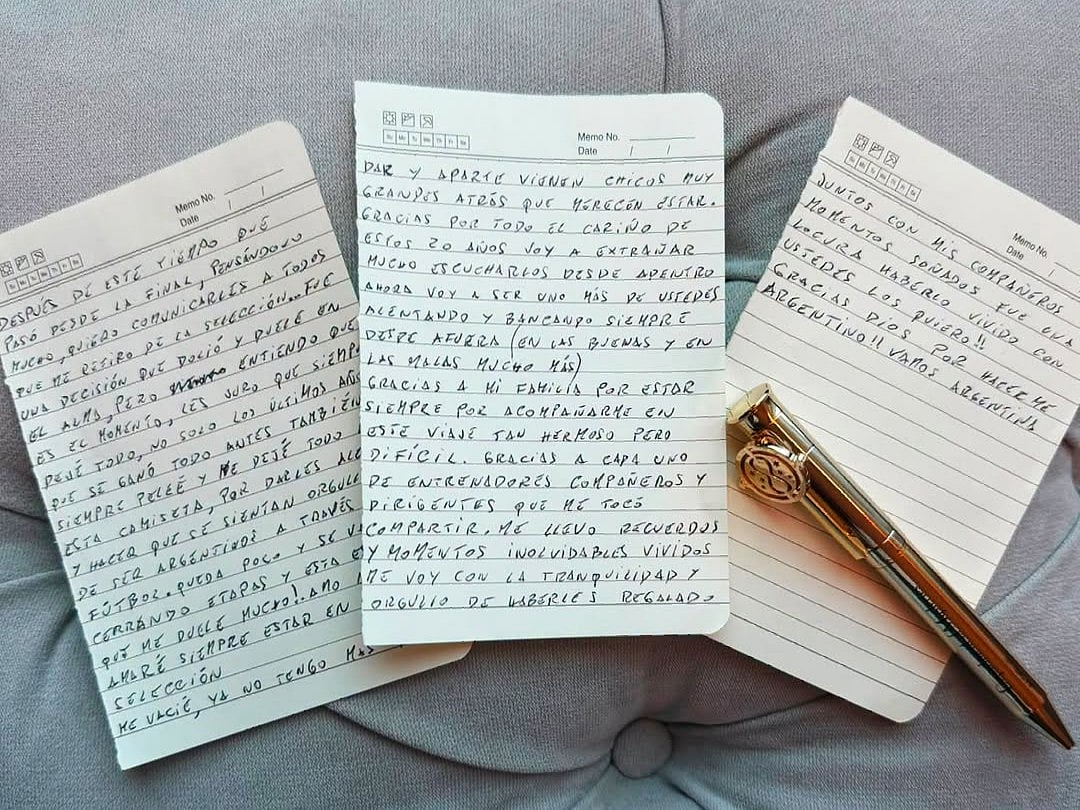 Memo No.
Date / /
DESPUÉS DE ESTE TIEMPO QUE
PASÓ DESDE LA FINAL, PENSÁNDOLO
MUCHO, QUIERO COMUNICARLES A TODOS
QUE ME RETIRO DE LA SELECCIÓN... FUE
UNA DECISIÓN QUE DOLIÓ Y DUELE EN
EL ALMA, PERO ENTIENDO QUE
ES EL MOMENTO, LES JURO QUE SIEMP
DEJÉ TODO, NO SOLO LOS ÚLTIMOS AÑOS
QUE SE GANÓ TODO ANTES TAMBIÉN
SIEMPRE PELEÉ Y ME DEJÉ TODO
ESTA CAMISETA, POR DARLES ALE
Y HACER QUE SE SIENTAN ORGULL
DE SER ARGENTINOS A TRAVÉS
FÚTBOL. QUEDA POCO Y SE VA
CERRANDO ETAPAS Y ESTA ES
QUE ME DUELE MUCHO!. AMO
AMARÉ SIEMPRE ESTAR EN
SELECCIÓN
ME VACIÉ, YA NO TENGO MAS
Su Mo Tu We Th Fr Sa
Memo No.
Date / /
DAR Y APARTE VIENEN CHICOS MUY
GRANDES ATRÁS QUE MERECEN ESTAR.
GRACIAS POR TODO EL CARIÑO DE
ESTOS 20 AÑOS VOY A EXTRAÑAR
MUCHO ESCUCHARLOS DESDE ADENTRO
AHORA VOY A SER UNO MÁS DE USTEDES
ALENTANDO Y BANCANDO SIEMPRE
DESDE AFUERA (EN LAS BUENAS Y EN
LAS MALAS MUCHO MÁS)
GRACIAS A MI FAMILIA POR ESTAR
SIEMPRE POR ACOMPAÑARME EN
ESTE VIAJE TAN HERMOSO PERO
DIFÍCIL. GRACIAS A CADA UNO
DE ENTRENADORES COMPAÑEROS Y
DIRIGENTES QUE ME TOCÓ
COMPARTIR. ME LLEVO RECUERDOS
Y MOMENTOS INOLVIDABLES VIVIDOS
ME VOY CON LA TRANQUILIDAD Y
ORGULLO DE HABERLES REGALADO
Memo No.
Date / /
JUNTOS CON MIS COMPAÑEROS
MOMENTOS SOÑADOS FUE UNA
LOCURA HABERLO VIVIDO CON
USTEDES LOS QUIERO!!
GRACIAS DIOS POR HACERME
ARGENTINO!! VAMOS ARGENTINA